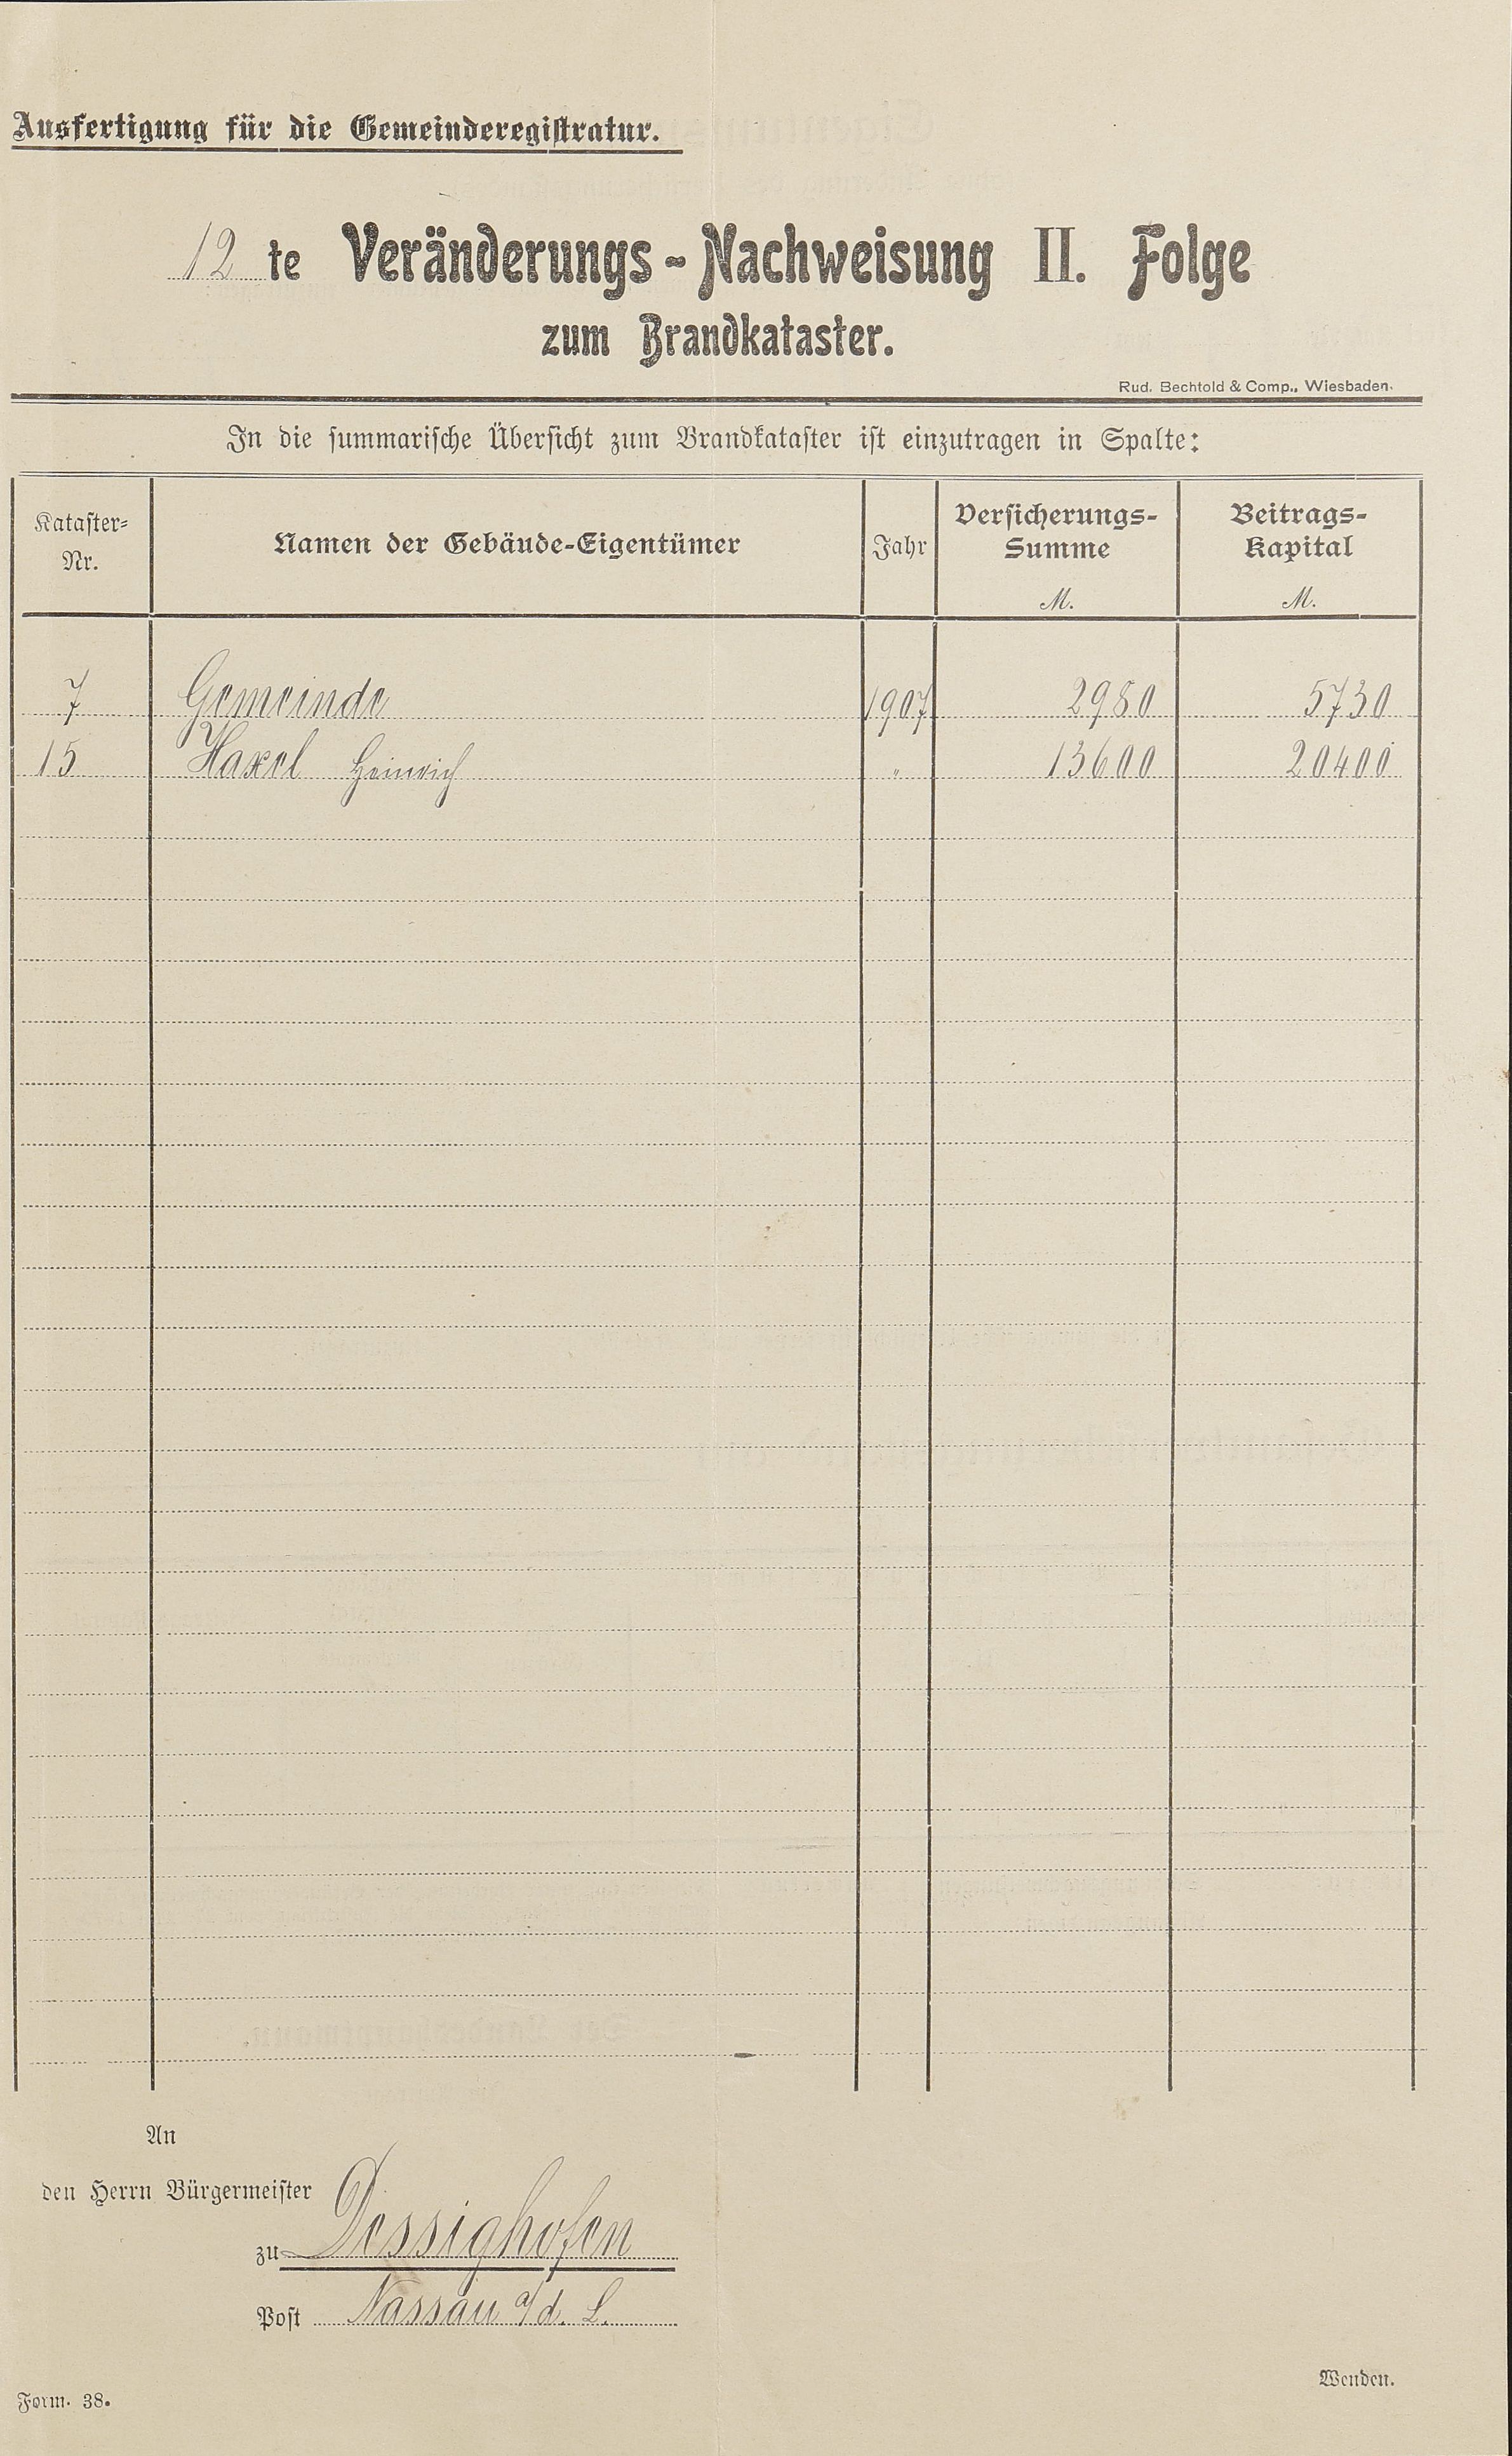 Ausfertigung für die Gemeinderegistratur.
12 te Veränderungs-Nachweisung II. Folge
zum Brandkataster.
Rud. Bechtold & Comp., Wiesbaden.
In die summarische Übersicht zum Brandkataster ist einzutragen in Spalte:
Kataster-Nr. Namen der Gebäude-Eigentümer Jahr Versicherungs-Summe M. Beitrags-Kapital M.
7 Gemeinde 1907 2980 5730
15 Haxel Heinrich " 13600 20400
An
den Herrn Bürgermeister
zu Dessighofen
Post Nassau a/d. L.
Wenden.
Form. 38.